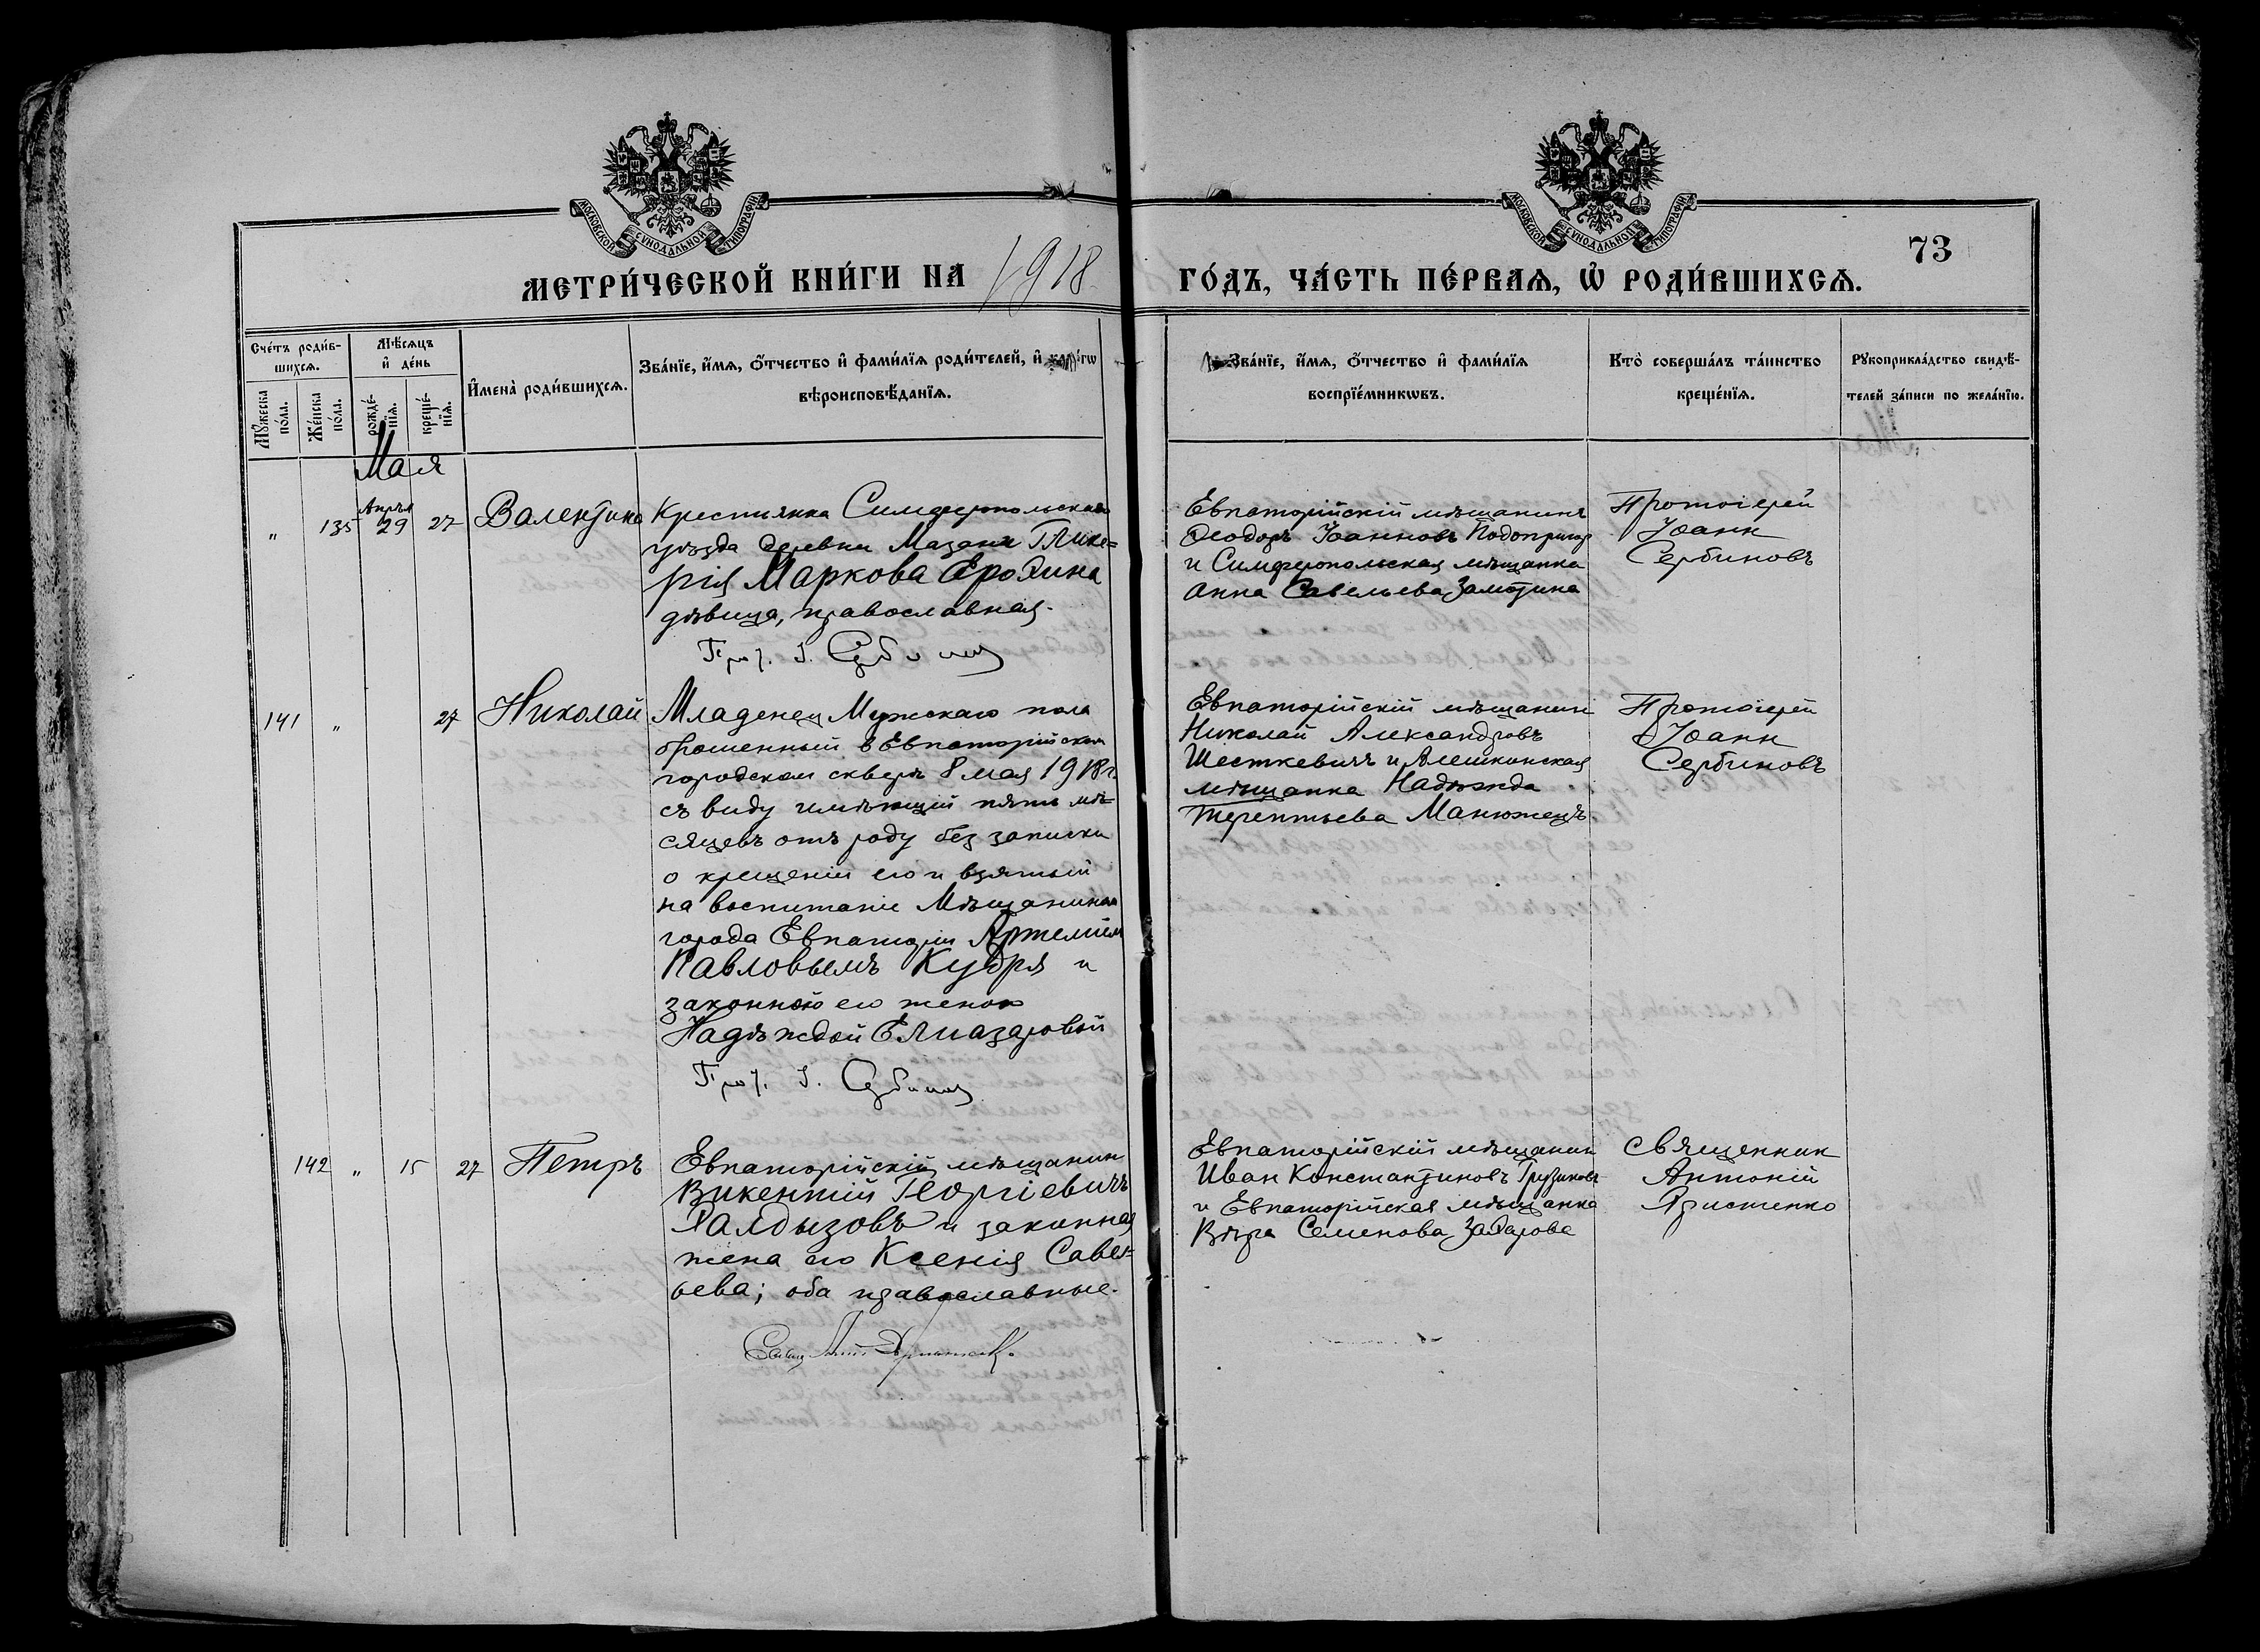 МОСКОВСКОЙ СѴНОДАЛЬНОЙ ТИПОГРАФІИ
МОСКОВСКОЙ СѴНОДАЛЬНОЙ ТИПОГРАФІИ
73
МЕТРИ́ЧЕСКОЙ КНИ́ГИ НА 1918 ГО́ДЪ, ЧА́СТЬ ПЕ́РВАѦ, Ѡ҆ РОДИ́ВШИХСѦ.
Сче́тъ роди́в-
шихсѧ.
Мꙋ́жеска по́ла.
Же́нска по́ла.
Мѣ́сѧцъ
и҆ де́нь
рожде́-
нїѧ.
креще́-
нїѧ.
И҆мена̀ роди́вшихсѧ.
Зва́нїе, и҆́мѧ, ѻ҆́тчество и҆ фами́лїѧ роди́телей, и҆
вѣроисповѣ́данїѧ.
Зва́нїе, и҆́мѧ, ѻ҆́тчество и҆ фами́лїѧ
воспрїе́мникѡвъ.
Кто̀ соверша́лъ та́инство
креще́нїѧ.
Рꙋкоприкла́дство свидѣ́-
телей за́писи по жела́нїю.
Мая
" 135 Апрѣл 29 27 Валентина
Крестьянка Симферопольскаго
уѣзда деревни Мазанк Глике=
рія Маркова Ерохина
дѣвица, православная.
Прот. І. Сербинов
Евпаторійскій мѣщанинъ
Ѳеодоръ Іоанновъ Подопригор
и Симферопольская мѣщанка
Анна Савельева Замотина
Протоіерей
Іоанн
Сербиновъ
141 " 27 Николай
Младенец Мужскаго пола
брошенный в Евпаторійском
городском скверѣ 8 мая 1918 г.
съ виду имѣющій пять мѣ-
сяцевъ отъ роду без записки
о крещеніи его и взятый
на воспитаніе Мѣщанином
города Евпаторіи Артеміем
Павловымъ Кудря и
законною его женою
Надѣждой Елиазаровой
Прот. І. Сербинов
Евпаторійскій мѣщанин
Николай Александровъ
Шесткевичъ и Алешкинская
мѣщанка Надежда
Терентьева Манюжецъ
Протоіерей
Іоанн
Сербиновъ
142 " 15 27 Петръ
Евпаторійскій мѣщанин
Викентій Георгіевичъ
Халдызовъ и законная
жена его Ксенія Саве-
ьева; оба православные.
Евпаторійскій мѣщанин
Иван Константиновъ Грузинов
и Евпаторійская мѣщанка
Вѣра Семенова Захарова
Священник
Антоній
Аристенко